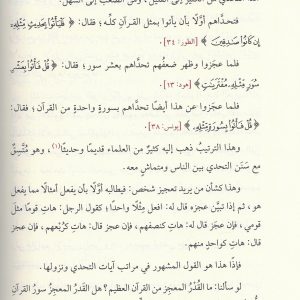 فتحدَّاهم أوَّلًا بأن يأتوا بمثل القرآن كلِّه؛ فقال: ﴿ فَلْيَأْتُوا بِحَدِيثٍ مِّثْلِهِ
إِن كَانُوا صَادِقِينَ ﴾ [الطور: ٣٤].
فلما عجَزوا وظهر ضعفُهم تحدَّاهم بعشر سور؛ فقال: ﴿ قُلْ فَأْتُوا بِعَشْرِ
سُوَرٍ مِّثْلِهِ مُفْتَرَيَاتٍ ﴾ [هود: ١٣].
فلما عجزوا عن هذا أيضًا تحدَّاهم بسورةٍ واحدةٍ من القرآن؛ فقال:
﴿ قُلْ فَأْتُوا بِسُورَةٍ مِّثْلِهِ ﴾ [يونس: ٣٨].
وهذا الترتيبُ ذهب إليه كثيرٌ من العلماء قديمًا وحديثًا(١)، وهو مُتَّسِقٌ
مع سَنَن التحدي بين الناس ومتماشٍ معه.
وهذا كشأن من يريد تعجيزَ شخص: فيطالبه أوَّلًا بأن يفعل أمثالًا مما يفعل
هو، ثم إذا تبيَّن عجزه قال له: افعل مِثْلًا واحدًا؛ كقول الرجل: هاتِ قومًا مثلَ
قومي، فإن عجَز قال له: هاتِ كنصفهم، فإن عجز قال: هاتِ كرُبْعهم، فإن عجز
قال: هات كواحدٍ منهم.
فإذًا هذا هو القول المشهور في مراتب آيات التحدي ونزولها.
لو سألنا: ما القَدْرُ المعجزُ من القرآن العظيم؟ هل القَدرُ المعجزُ سورُ القرآن